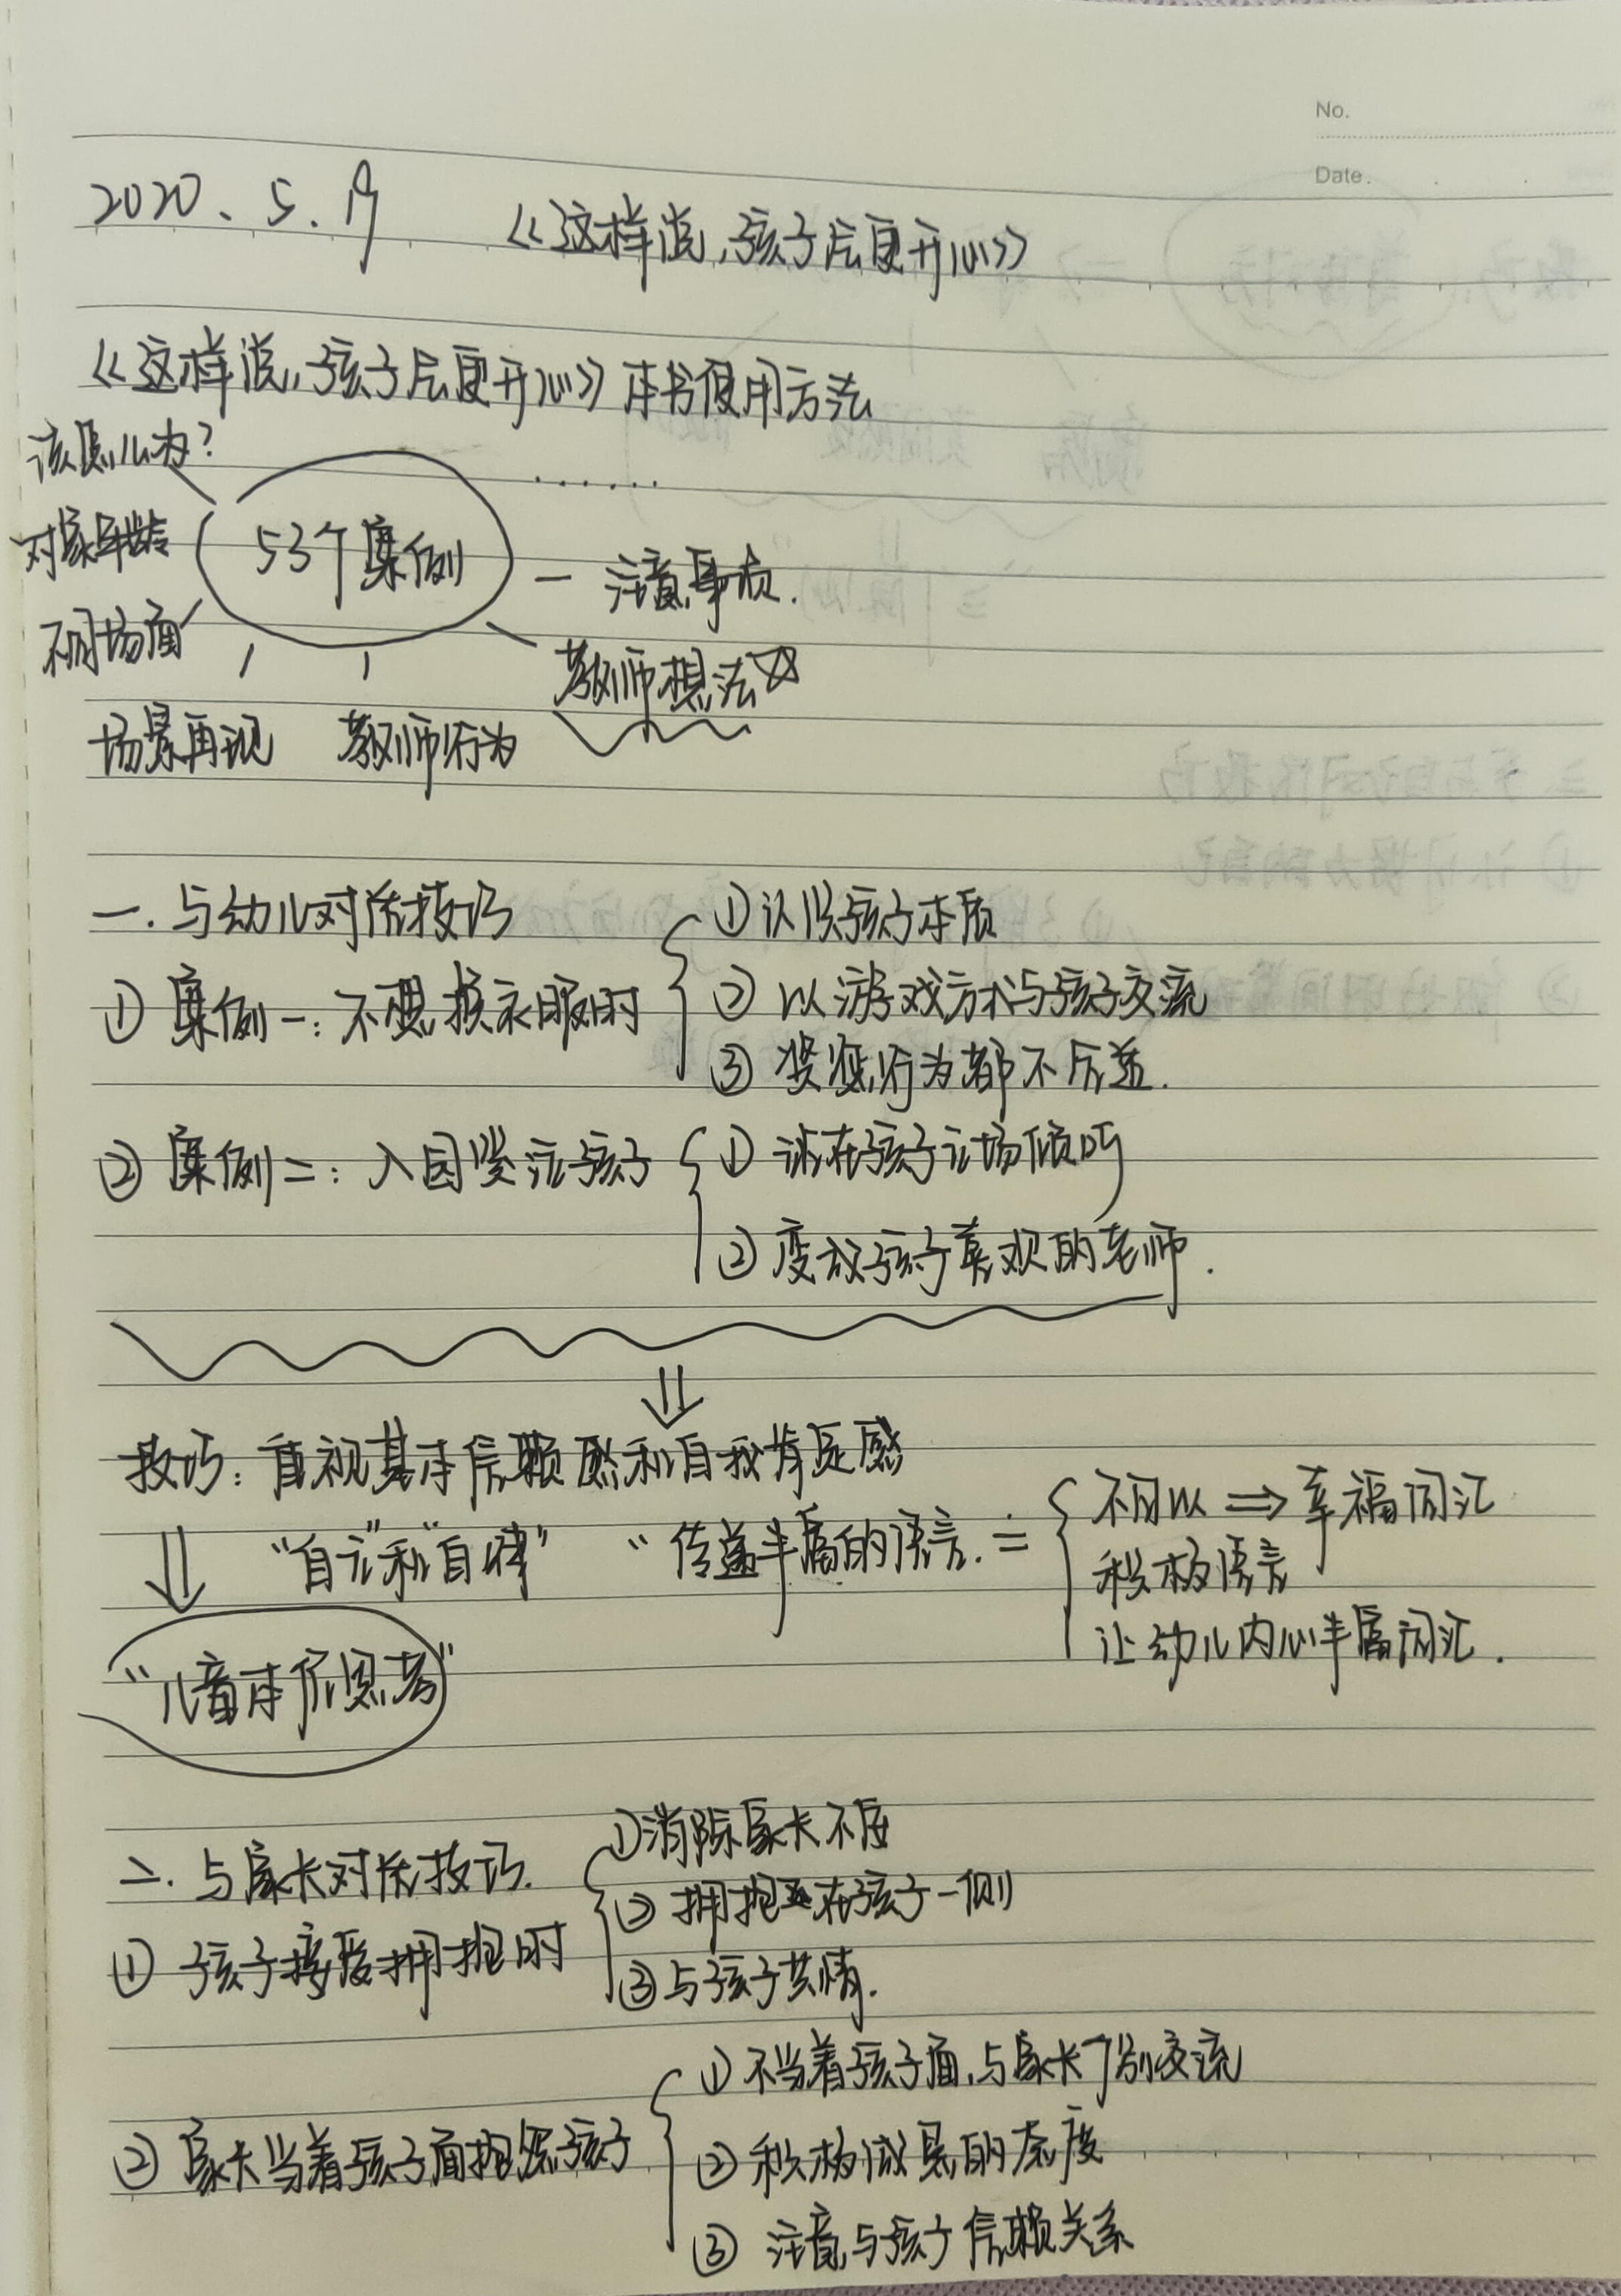 No.
Date.
2020、5.19 《这样说,孩子会更开心》
《这样说,孩子会更开心》本书使用方法
该怎么办?
......
对象年龄
53个案例
注意事项.
不同场面
教师想法
场景再现 教师行为
一.与幼儿对话技巧
①案例一:不想换衣服时
①认识孩子本质
②以游戏方式与孩子交流
③奖惩行为都不合适.
②案例二:入园哭泣孩子
①站在孩子立场倾听
②变成孩子喜欢的老师.
⇓
技巧:重视基本信赖感和自我肯定感
⇓ "自立"和"自律" "传递丰富的语言.=
不可以⇒幸福词汇
积极语言
让幼儿内心丰富词汇.
"儿童本位思考"
二.与家长对话技巧.
①孩子接受拥抱时
①消除家长不安
②拥抱 在孩子一侧
③与孩子共情.
②家长当着孩子面抱怨孩子
①不当着孩子面,与家长个别交流
②积极 的态度
③注意与孩子信赖关系